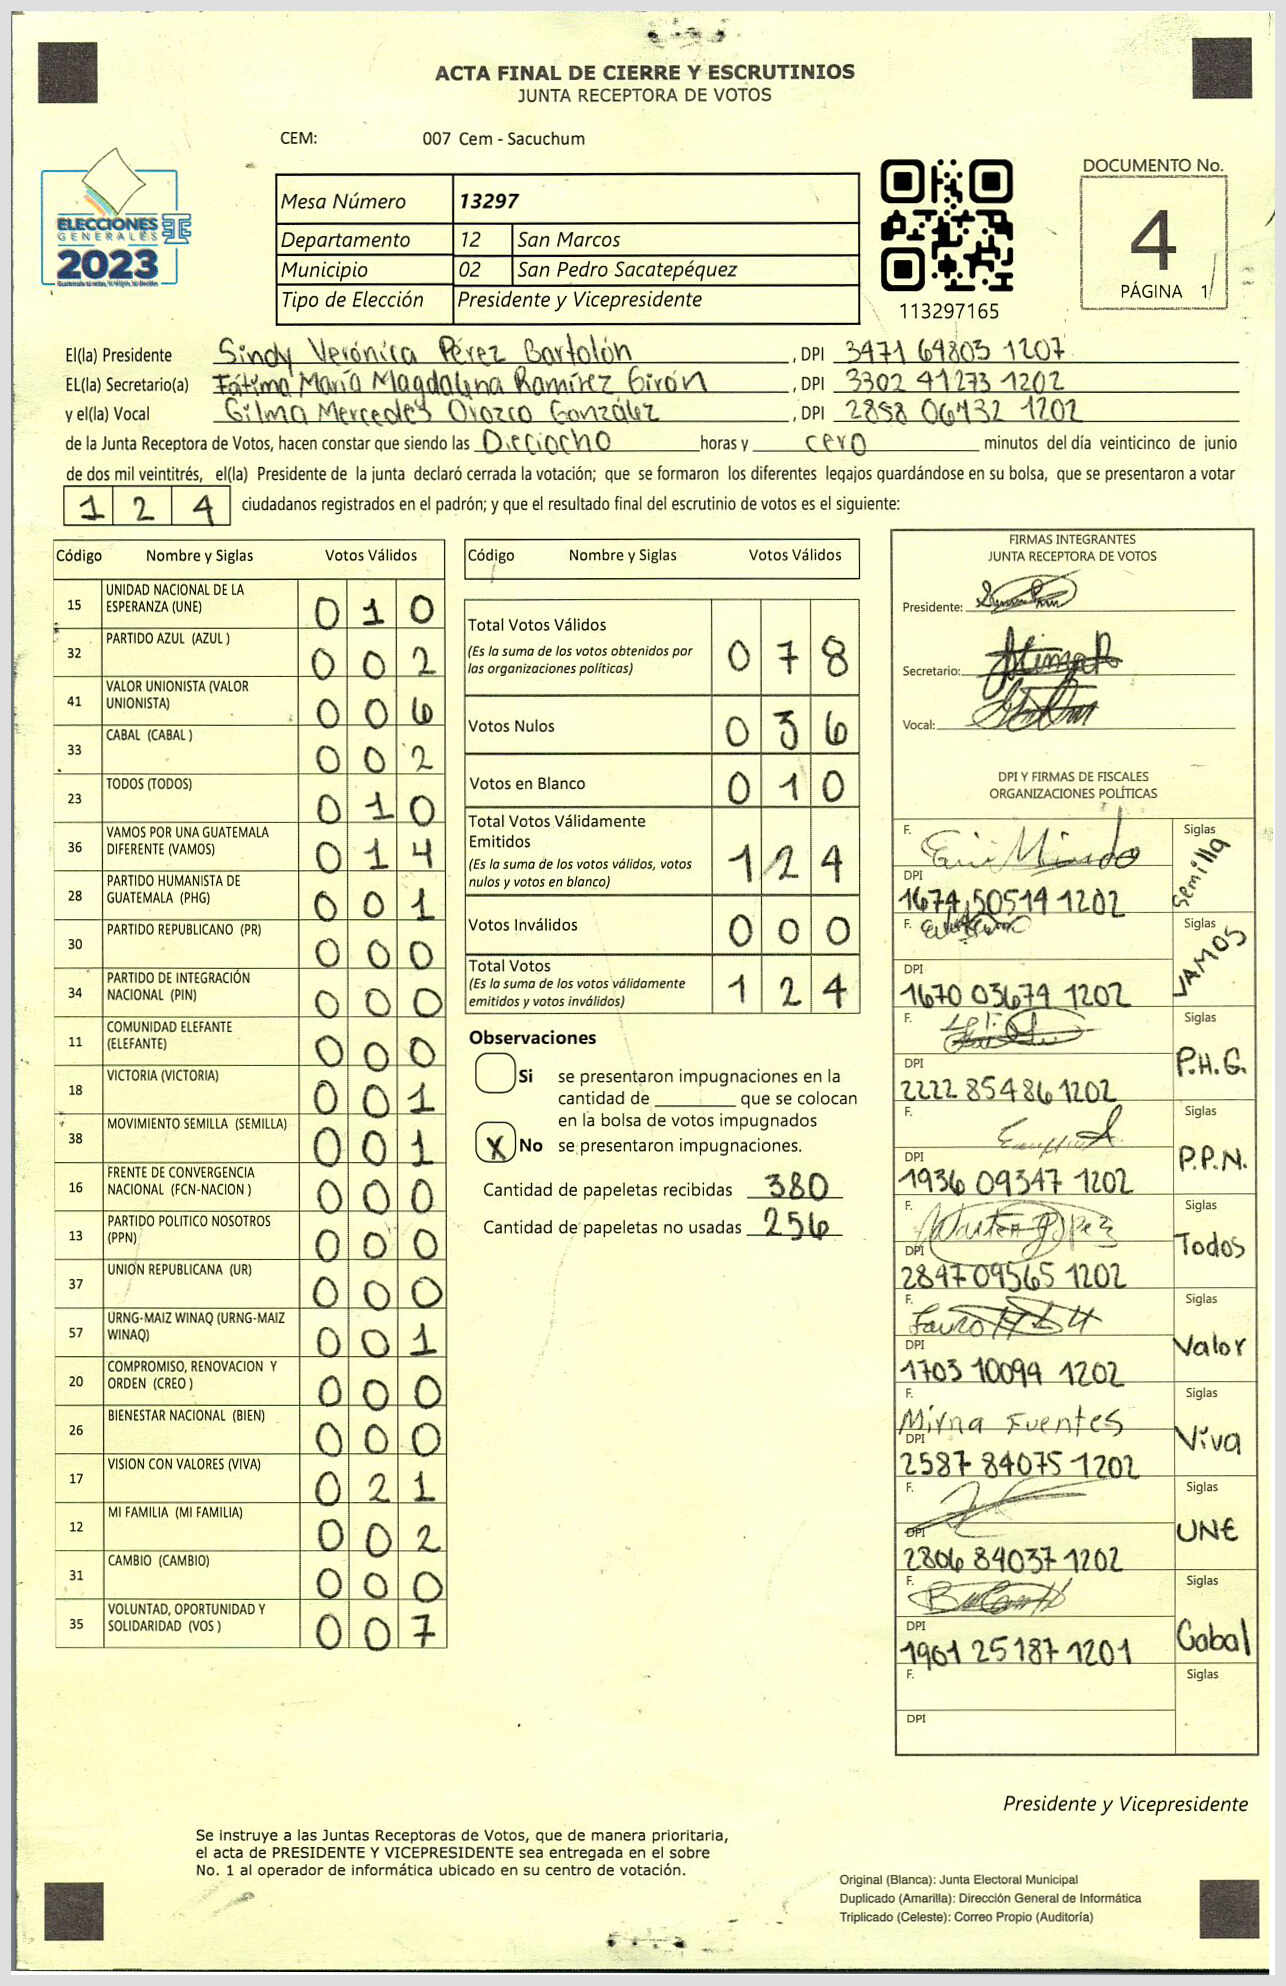 ACTA FINAL DE CIERRE Y ESCRUTINIOS
JUNTA RECEPTORA DE VOTOS
CEM: 007 Cem - Sacuchum
ELECCIONES
GENERALES
2023
Mesa Número 13297
Departamento 12 San Marcos
Municipio 02 San Pedro Sacatepéquez
Tipo de Elección Presidente y Vicepresidente
113297165
DOCUMENTO No.
4
PÁGINA 1
El(la) Presidente Sindy Verónica Pérez Bartolón , DPI 3471 64803 1207
EL(la) Secretario(a) Fátima María Magdalena Ramírez Girón , DPI 3302 41273 1202
y el(la) Vocal Gilma Mercedes Orozco González , DPI 2858 06432 1202
de la Junta Receptora de Votos, hacen constar que siendo las Dieciocho horas y cero minutos del día veinticinco de junio
de dos mil veintitrés, el(la) Presidente de la junta declaró cerrada la votación; que se formaron los diferentes legajos guardándose en su bolsa, que se presentaron a votar
1 2 4 ciudadanos registrados en el padrón; y que el resultado final del escrutinio de votos es el siguiente:
Código Nombre y Siglas Votos Válidos
15 UNIDAD NACIONAL DE LA ESPERANZA (UNE) 0 1 0
32 PARTIDO AZUL (AZUL ) 0 0 2
41 VALOR UNIONISTA (VALOR UNIONISTA) 0 0 6
33 CABAL (CABAL ) 0 0 2
23 TODOS (TODOS) 0 1 0
36 VAMOS POR UNA GUATEMALA DIFERENTE (VAMOS) 0 1 4
28 PARTIDO HUMANISTA DE GUATEMALA (PHG) 0 0 1
30 PARTIDO REPUBLICANO (PR) 0 0 0
34 PARTIDO DE INTEGRACIÓN NACIONAL (PIN) 0 0 0
11 COMUNIDAD ELEFANTE (ELEFANTE) 0 0 0
18 VICTORIA (VICTORIA) 0 0 1
38 MOVIMIENTO SEMILLA (SEMILLA) 0 0 1
16 FRENTE DE CONVERGENCIA NACIONAL (FCN-NACION ) 0 0 0
13 PARTIDO POLITICO NOSOTROS (PPN) 0 0 0
37 UNION REPUBLICANA (UR) 0 0 0
57 URNG-MAIZ WINAQ (URNG-MAIZ WINAQ) 0 0 1
20 COMPROMISO, RENOVACION Y ORDEN (CREO ) 0 0 0
26 BIENESTAR NACIONAL (BIEN) 0 0 0
17 VISION CON VALORES (VIVA) 0 2 1
12 MI FAMILIA (MI FAMILIA) 0 0 2
31 CAMBIO (CAMBIO) 0 0 0
35 VOLUNTAD, OPORTUNIDAD Y SOLIDARIDAD (VOS ) 0 0 7
Código Nombre y Siglas Votos Válidos
Total Votos Válidos 0 7 8
(Es la suma de los votos obtenidos por
las organizaciones políticas)
Votos Nulos 0 3 6
Votos en Blanco 0 1 0
Total Votos Válidamente
Emitidos 1 2 4
(Es la suma de los votos válidos, votos
nulos y votos en blanco)
Votos Inválidos 0 0 0
Total Votos 1 2 4
(Es la suma de los votos válidamente
emitidos y votos inválidos)
Observaciones
Si se presentaron impugnaciones en la
cantidad de ________ que se colocan
en la bolsa de votos impugnados
X No se presentaron impugnaciones.
Cantidad de papeletas recibidas 380
Cantidad de papeletas no usadas 256
FIRMAS INTEGRANTES
JUNTA RECEPTORA DE VOTOS
Presidente:
Secretario:
Vocal:
DPI Y FIRMAS DE FISCALES
ORGANIZACIONES POLÍTICAS
F. Siglas
Semilla
DPI
1674 50514 1202
F. Siglas
VAMOS
DPI
1670 03679 1202
F. Siglas
P.H.G.
DPI
2222 85486 1202
F. Siglas
P.P.N.
DPI
1936 09347 1202
F. Siglas
Todos
DPI
2847 09565 1202
F. Siglas
Valor
DPI
1703 10099 1202
F. Siglas
Mirna Fuentes
Viva
DPI
2587 84075 1202
F. Siglas
UNE
DPI
2806 84037 1202
F. Siglas
Cabal
DPI
1901 25187 1201
F. Siglas
DPI
Presidente y Vicepresidente
Se instruye a las Juntas Receptoras de Votos, que de manera prioritaria,
el acta de PRESIDENTE Y VICEPRESIDENTE sea entregada en el sobre
No. 1 al operador de informática ubicado en su centro de votación.
Original (Blanca): Junta Electoral Municipal
Duplicado (Amarilla): Dirección General de Informática
Triplicado (Celeste): Correo Propio (Auditoría)